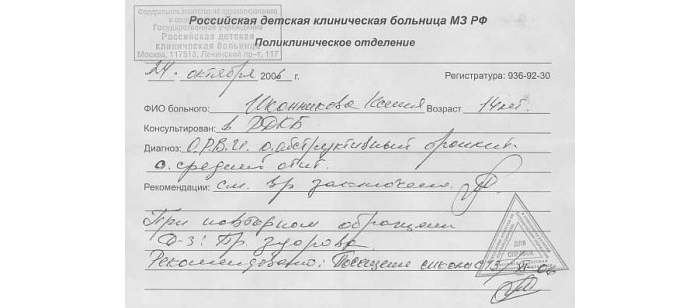 Российская детская клиническая больница МЗ РФ
Поликлиническое отделение
Федеральное агентство по здравоохранению
и соц
Государственное учреждение
Российская детская
клиническая больница
Москва, 117513, Ленинский пр-т, 117
24 октября 2006 г.
Регистратура: 936-92-30
ФИО больного: Иконникова Ксения Возраст 14 лет.
Консультирован: в РДКБ
Диагноз: О.Р.В.И. о. обструктивный бронхит.
о. средний отит.
Рекомендации: см. вр заключение.
При повторном обращении
Д-з: Пр. здорова.
Рекомендовано: Посещение школы с 13/XI-06
ДЛЯ